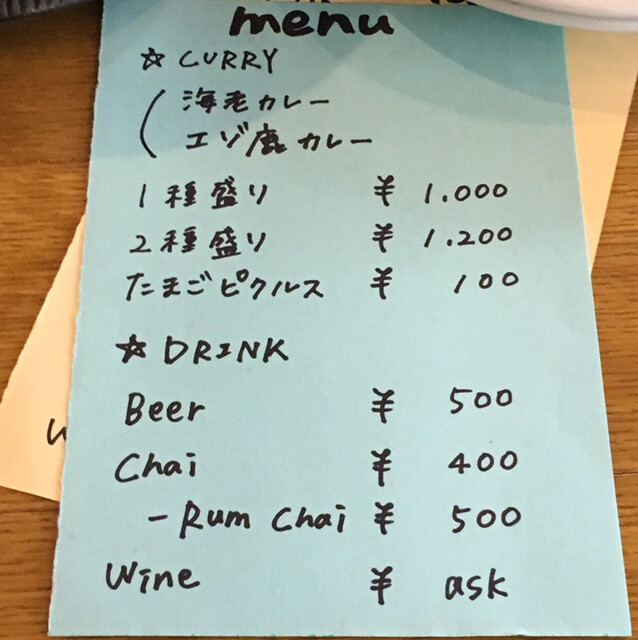 menu
☆ CURRY
海老カレー
エゾ鹿カレー
1種盛り ¥ 1.000
2種盛り ¥ 1.200
たまごピクルス ¥ 100
☆ DRINK
Beer ¥ 500
Chai ¥ 400
- Rum Chai ¥ 500
Wine ¥ ask